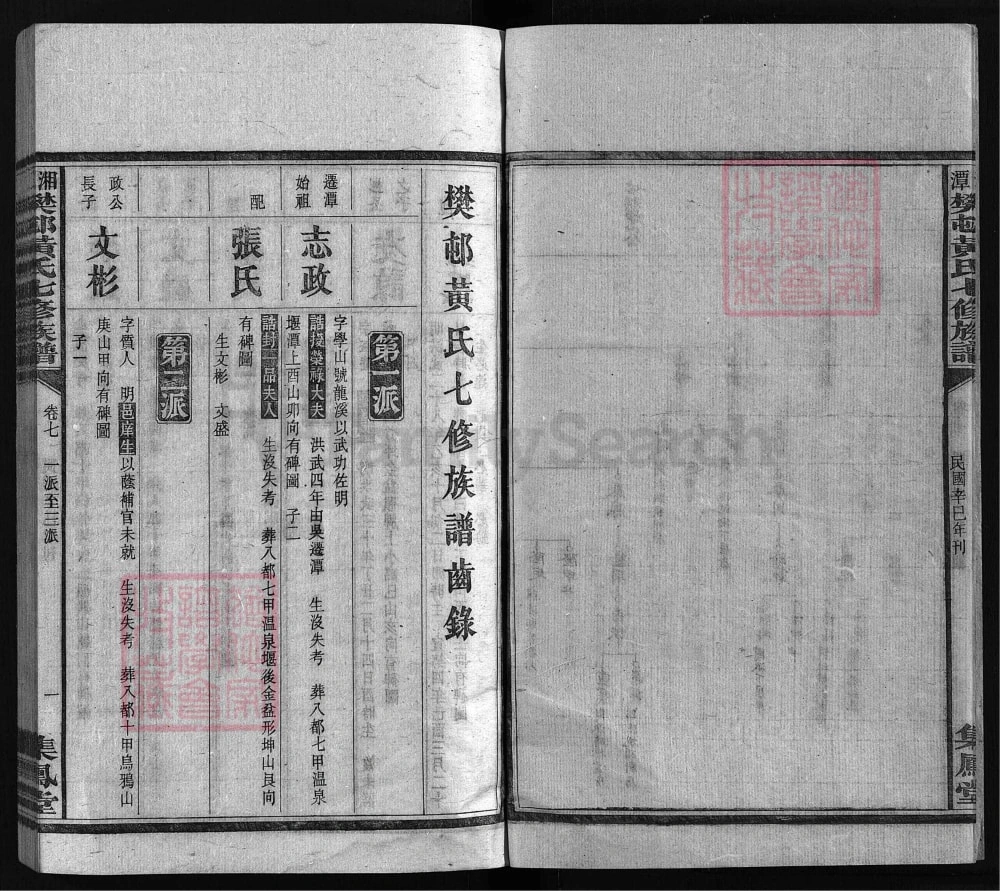 潭樊邨黃氏七修族譜
民國辛巳年刊
集鳳堂
樊邨黃氏七修族譜齒錄
第一派
遷潭
始祖
志政
字學山號龍溪以武功佐明
誥授榮祿大夫 洪武四年由吳遷潭 生沒失考 葬八都七甲温泉
堰潭上酉山卯向有碑圖 子二
配
張氏
誥封一品夫人 生沒失考 葬八都七甲温泉堰後金盆形坤山艮向
有碑圖
生文彬 文盛
第二派
政公
長子
文彬
字質人 明邑庠生以蔭補官未就 生沒失考 葬八都十甲烏鴉山
庚山甲向有碑圖
子一
湘樊邨黃氏七修族譜
卷七
一派至三派
一
集鳳堂
FamilySearch